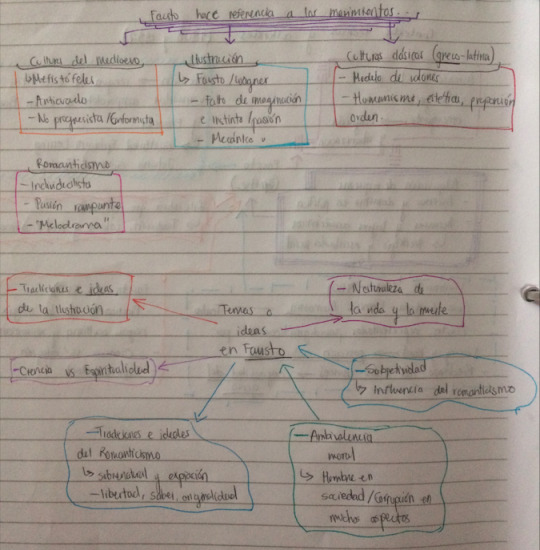 Fausto hace referencia a los movimientos...
Cultura del medioevo
↳ Mefistófeles
- Anticuado
- No progresista / Conformista
Ilustración
↳ Fausto / Wagner
- Falta de imaginación
e instinto / pasión
- Mecánico
Culturas clásicas (greco-latina)
- Modelo de valores
- Humanismo, estética, proporción
orden.
Romanticismo
- Individualista
- Pasión rampante
- "Melodrama"
Temas o
ideas
en Fausto
- Tradiciones e ideas
de la Ilustración
- Naturaleza de
la vida y la muerte
- Ciencia vs Espiritualidad
- Subjetividad
↳ Influencia del romanticismo
- Tradiciones e ideales
del Romanticismo
↳ sobrenatural y expiación
- libertad, saber, originalidad
- Ambivalencia
moral
↳ Hombre en
sociedad / Corrupción en
muchos aspectos